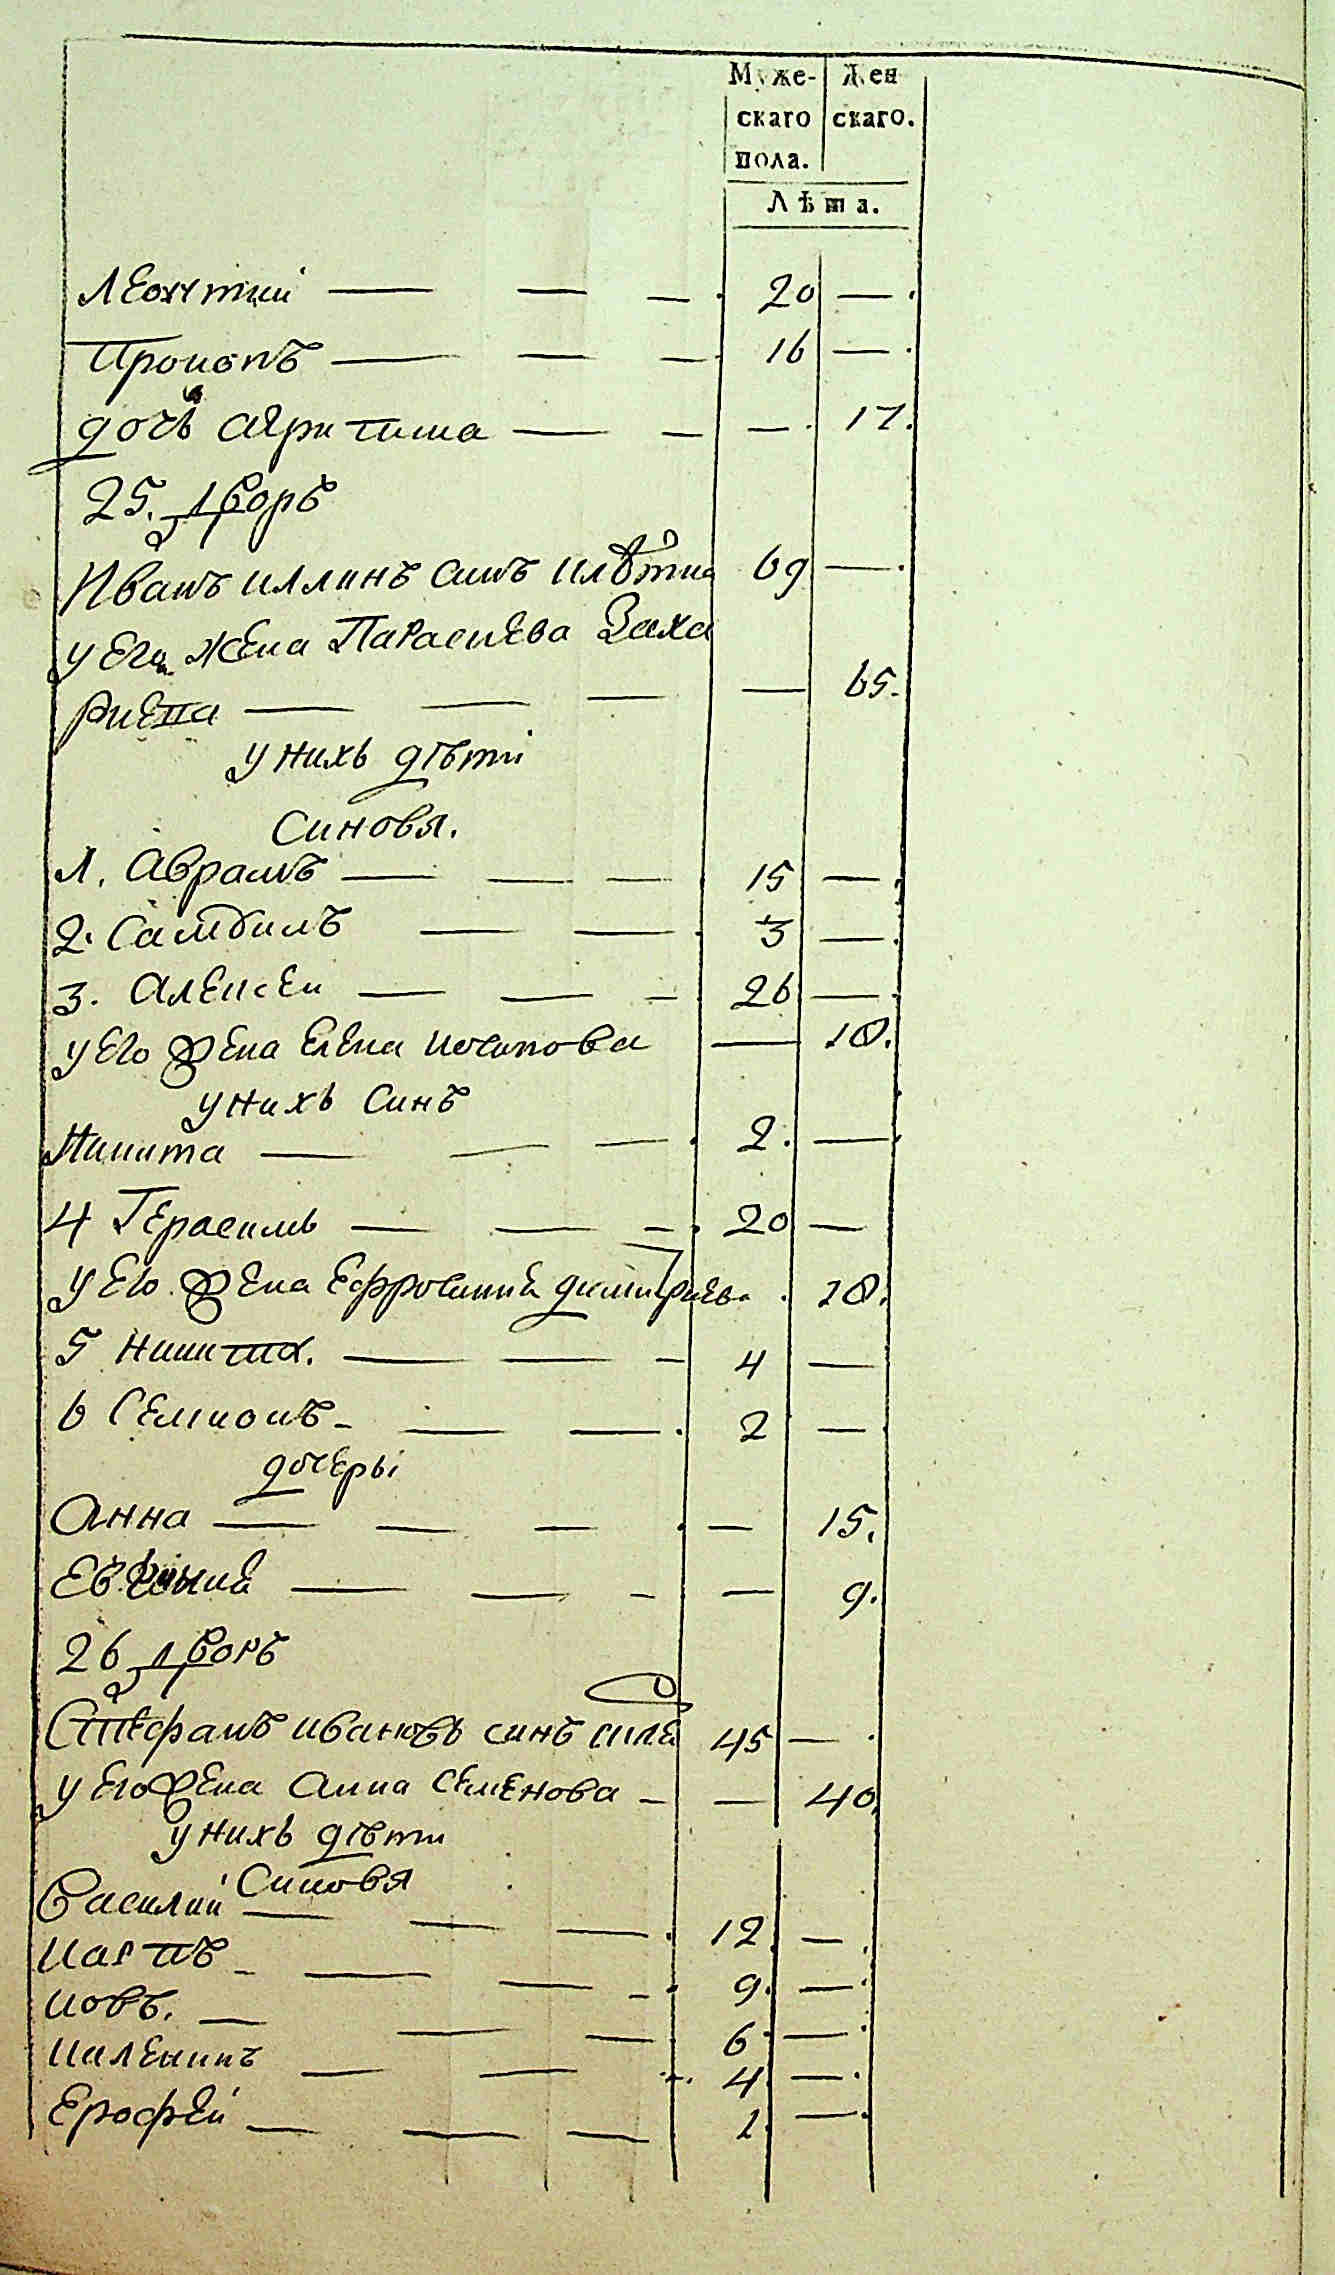 Муже- Жен
скаго скаго.
пола.
Лѣта.
Леонтий — — — 20 —
Прокопъ — — — 16 —
дочь — — — 17.
25. дворъ
Иванъ иллинъ синъ 69 —
у Его жена Парасиева Заха
риева — — — — 65.
у нихъ дѣти
Синовя.
1. Аврамъ — — — 15 —
2. Самоилъ — — 3 —
3. Алексеи — — — 26 —
у Его жена Елена иосипова — 18.
у нихъ Синъ
Никита — — — 2. —
4 Герасимъ — — — 20 —
у Его жена Ефросиния димитриева 18.
5 Никита. — — — 4 —
6 Семионъ — — — 2 —
дочеры
Анна — — — — 15.
— — — — 9.
26 дворъ
Стефанъ ивановъ синъ 45 —
у Его жена Анна Семенова — — 40.
у нихъ дѣти
Синовя
Василий — — — 12 —
Карпъ — — — — 9. —
Иовъ. — — — 6 —
— — — 4. —
Ерофей — — — 1. —